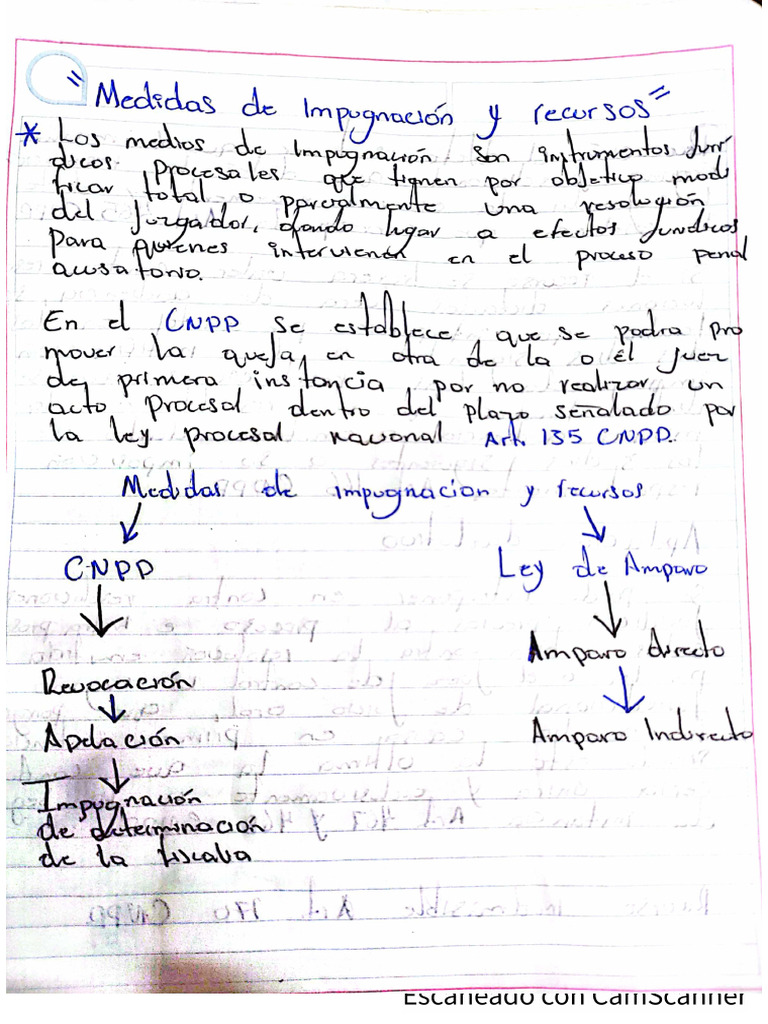 "Medidas de Impugnación y recursos"
* Los medios de Impugnación son instrumentos Jurí
dicos Procesales que tienen por objetivo modi
ficar total o parcialmente una resolución
del juzgador, dando lugar a efectos Jurídicos
para quienes intervienen en el proceso penal
acusatorio.
En el CNPP se establece, que se podra pro
mover la queja, en otra de la o él juez
de primera instancia, por no realizar un
acto Procesal dentro del plazo señalado por
la ley procesal nacional Art. 135 CNPD.
Medidas de impugnacion y recursos
CNPP Ley de Amparo
Revocación Amparo directo
Apelación Amparo Indirecto
Impugnación
de determinación
de la fiscalia
Escaneado con CamScanner